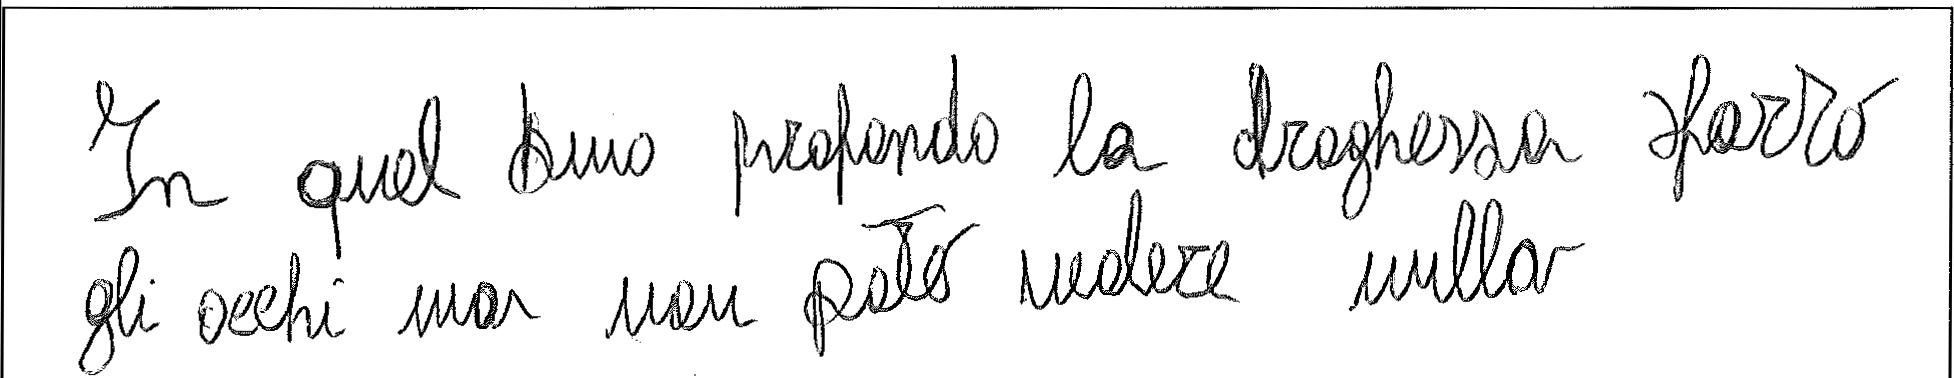 In quel buio profondo la draghessa sbarrò
gli occhi ma non potè vedere nulla